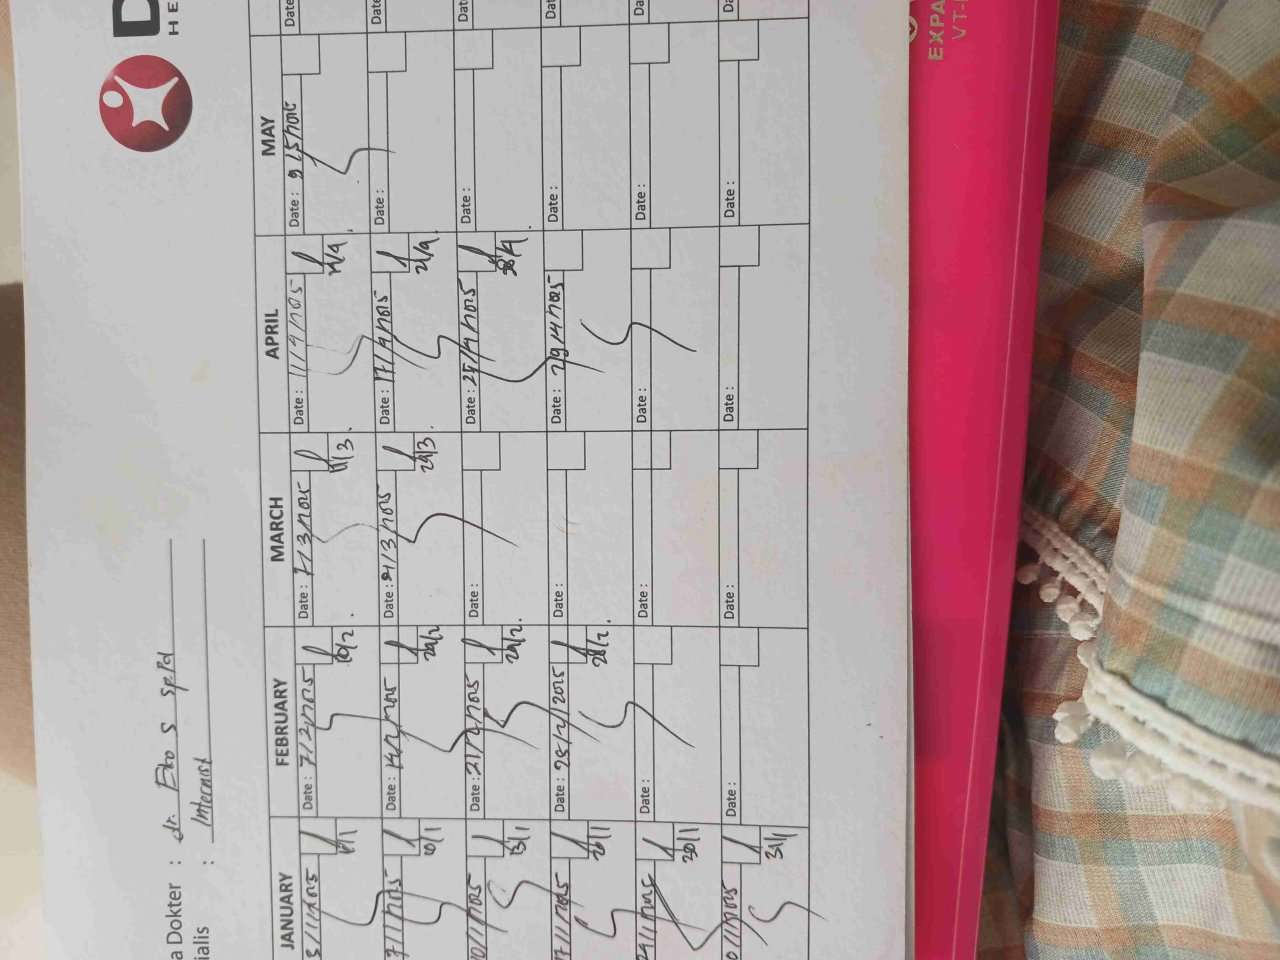 D
HE
a Dokter : dr. Eko S SpPd
ialis : Internist
JANUARY FEBRUARY MARCH APRIL MAY
3/1/2025 Date : 7/2/2025 Date : 7/3/2025 Date : 11/4/2025 Date : 9/5/2025 Date
6/1 10/2 11/4
7/1/2025 Date : 14/2/2025 Date : 21/3/2025 Date : 17/4/2025 Date : Date
24/3 21/4
10/1/2025 Date : 21/2/2025 Date : Date : 25/4/2025 Date : Dat
13/1 24/2 28/4
17/1/2025 Date : 28/2/2025 Date : 29/4/2025 Date : Dat
20/1 28/2
24/1/2025 Date : Date : Date : Date : Da
30/1
Date : Date : Date : Date : Da
31/1
EXPA
VT-